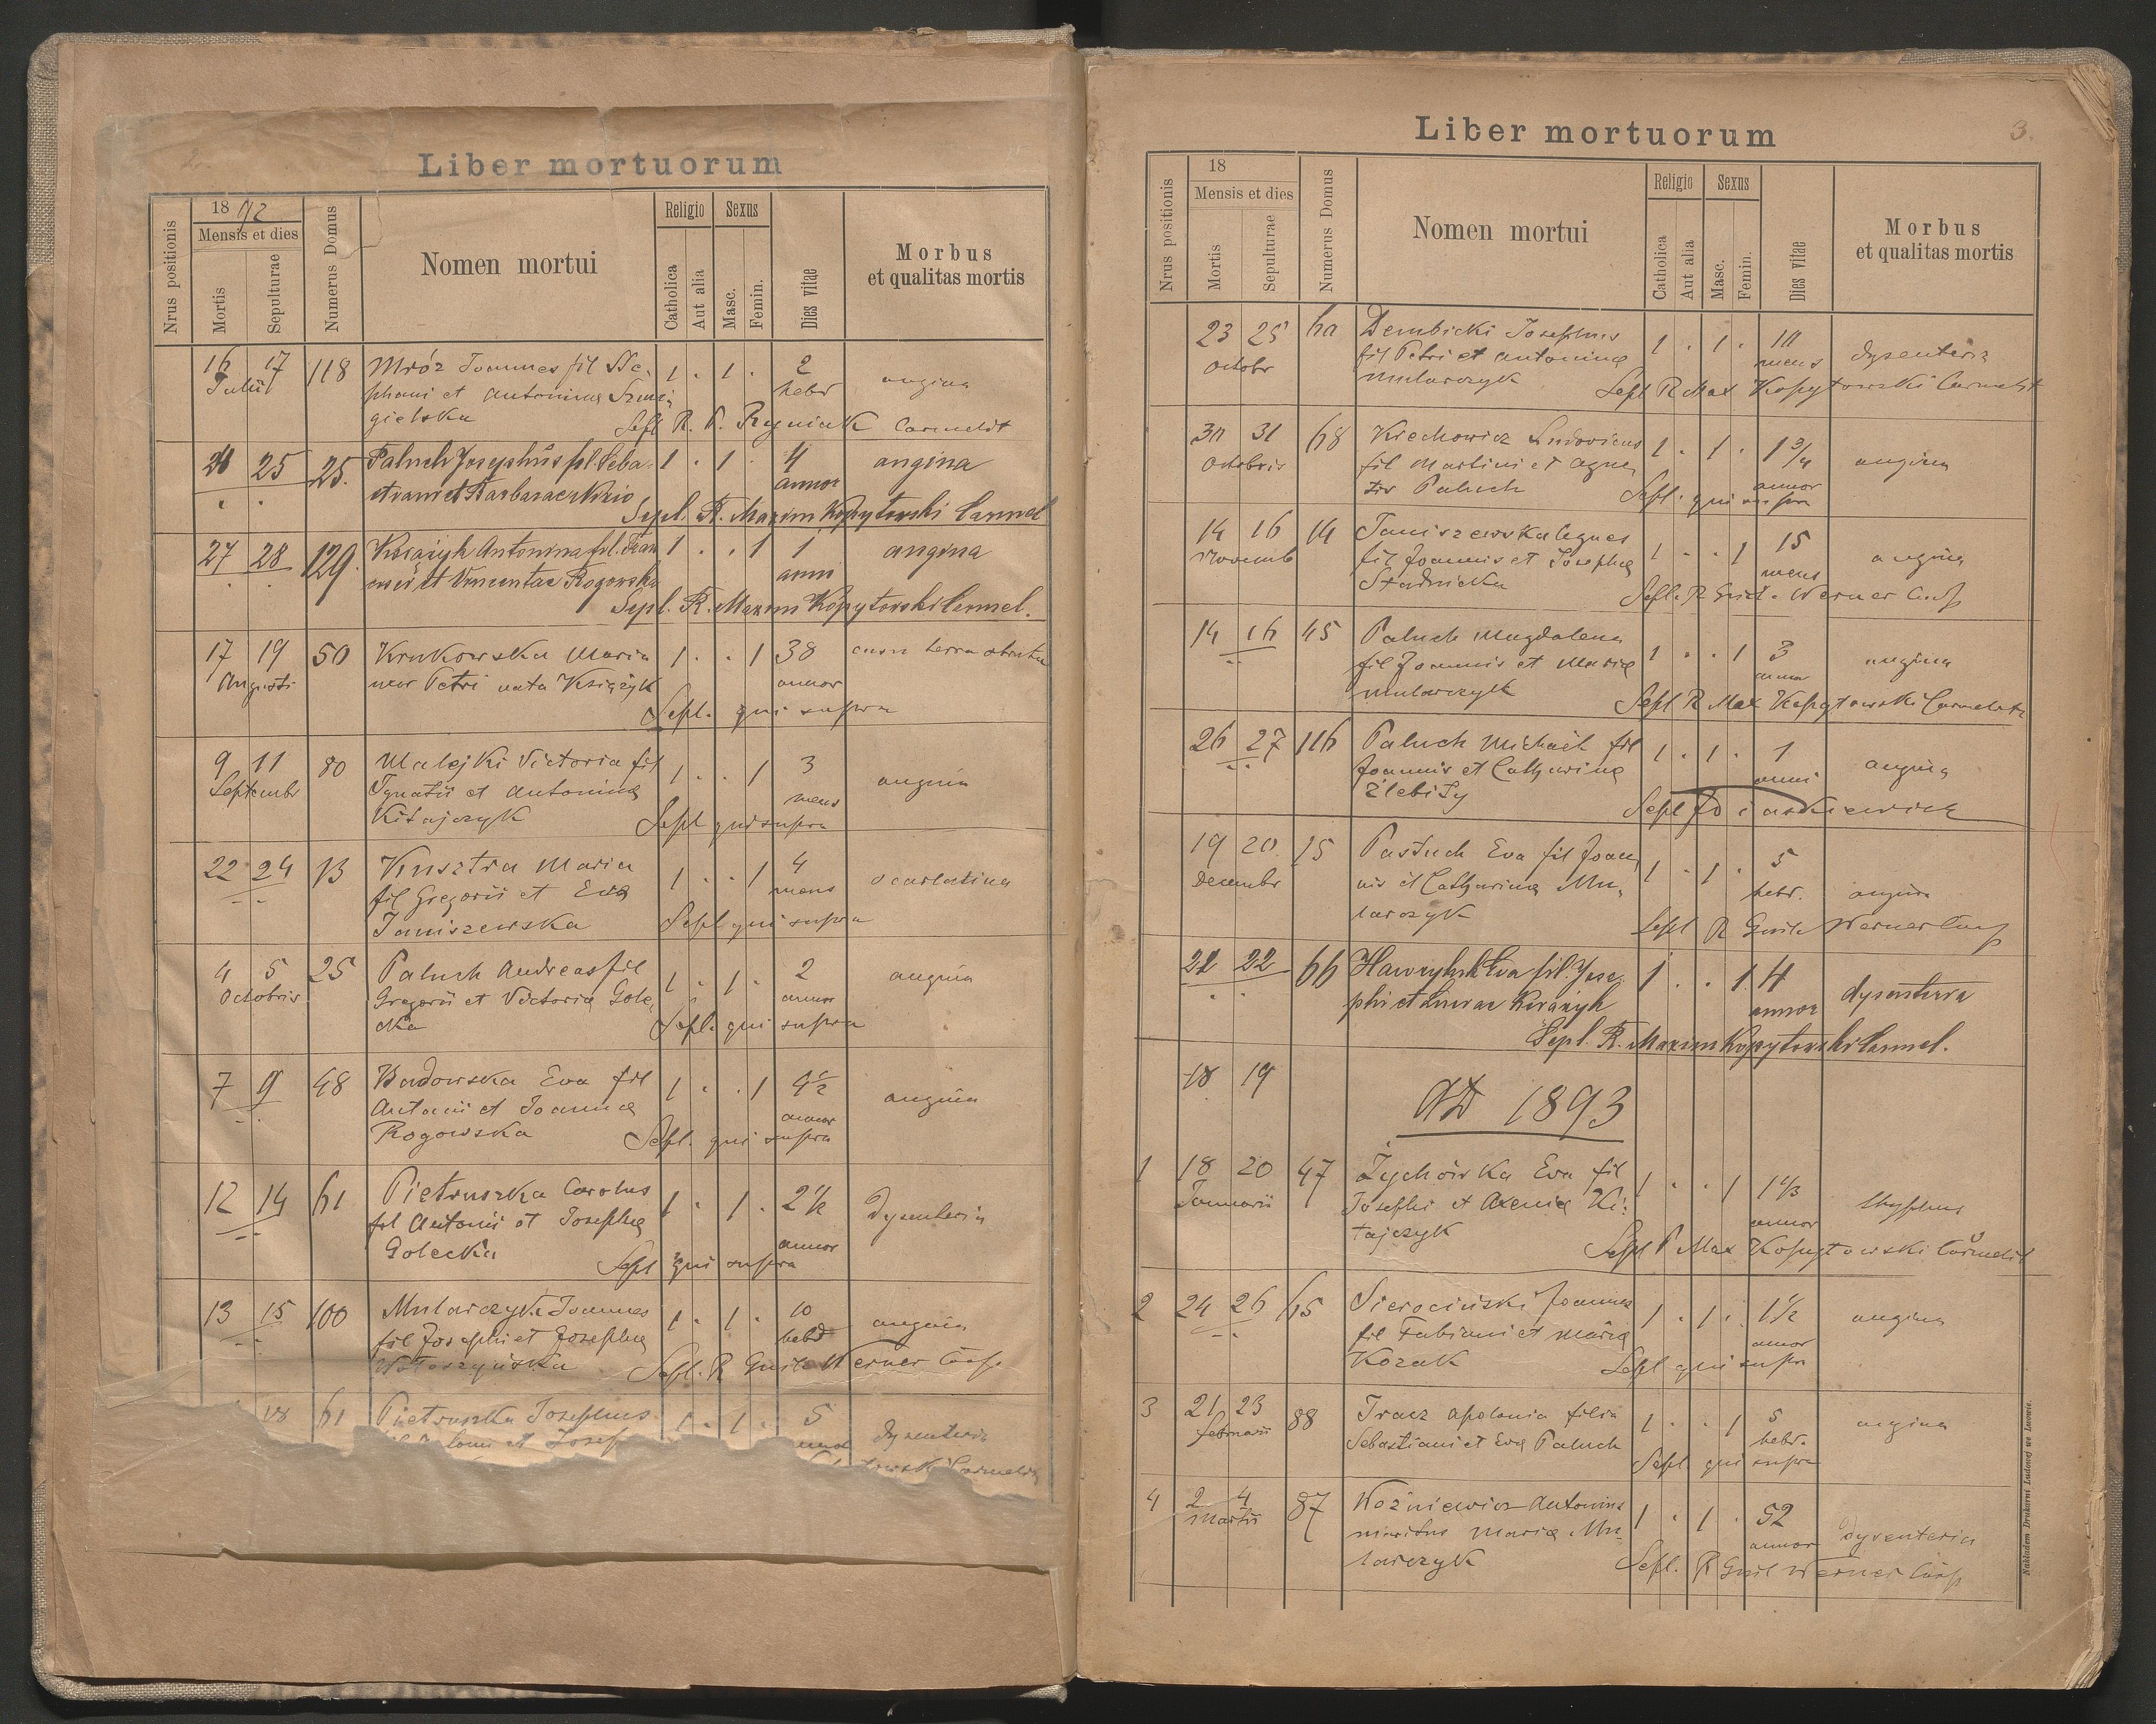 2.
Liber mortuorum
Nrus positionis
1892
Mensis et dies
Mortis
Sepulturae
Numerus Domus
Nomen mortui
Religio
Catholica
Aut alia
Sexus
Masc.
Femin.
Dies vitae
Morbus
et qualitas mortis
16 17 118 Mróz Joannes fil Ste- 1 . 1 . 2 angina
Julii phani et Antonina hebd
gielska Sepl R. P. Ryniak Carmelit
25 25. Paluch Josephus fil. Seba- 1 . 1 . 4 angina
stiani et Barbarae annor
Sepl. R. Maxim Kopytowski Carmel
27 28 129. Książyk Antonina fil. Fran 1 . . 1 1 angina
Rogowska anni
Sepl. R. Maxim Kopytowski Carmel.
17 19 50 Krukowska Maria 1 . . 1 38 casu terra obruta
Augusti uxor Petri nata Książyk annor
Sepl. qui supra
9 11 80 Malejki Victoria fil 1 . . 1 3 angina
Septembr Ignatii et Antonina mens
Kitajczyk Sepl qui supra
22 24 13 Kusztra Maria 1 . . 1 4 scarlatina
fil Gregorii et Eva mens
Janiszewska Sepl qui supra
4 5 25 Paluch Andreas fil 1 . 1 . 2 angina
Octobris Gregorii et Victoria Gole- annor
cka Sepl. qui supra
7 9 48 Badowska Eva fil 1 . . 1 4½ angina
Antonii et Joanna annor
Rogowska Sepl. qui supra
12 14 61 Pietruszka Carolus 1 . 1 . 2½ Dysenteria
fil Antonii et Josepha
Golecka annor
Sepl qui supra
13 15 100 Mularczyk Joannes 1 . 1 . 10 angina
fil Josephi et Josepha hebd
Sepl. R Guil Werner Coop
18 61 Pietruszka Josephus 1 . 1 . 5 dysenteria
et Josep
Carmelita
3.
Liber mortuorum
Nrus positionis
18
Mensis et dies
Mortis
Sepulturae
Numerus Domus
Nomen mortui
Religio
Catholica
Aut alia
Sexus
Masc.
Femin.
Dies vitae
Morbus
et qualitas mortis
23 25 Dembicki Josephus 1 . 1 . 10 dysenteria
Octobr fil Petri et Antonina mens
Mularczyk Sepl R Max Kopytowski Carmelit
30 31 68 Krechowicz Ludovicus 1 . 1 . 1¾ angina
Octobris fil Martini et Agne- annor
tis Paluch Sepl. qui supra
14 16 14 Janiszewska Agnes 1 . . 1 15 angina
Novemb fil Joannis et Josepha mens
Stadnicka Sepl. R Guil. Werner Coop
14 16 45 Paluch Magdalena 1 . . 1 3 angina
fil Joannis et Maria annor
Mularczyk Sepl R Max Kopytowski Carmelita
26 27 116 Paluch Michaël fil 1 . 1 . 1 angina
Joannis et Catharina anni
Sepl
19 20 25 Pastuch Eva fil Joan- 1 . 1 . 5 angina
Decembr nis et Catharina Mu- hebr.
larczyk Sepl R Guil Werner Coop
22 22 66 Eva fil. Jose- 1 . . 1. 4 dysenteria
phi et annor
Sepl. R. Maxim Kopytowski Carmel.
18 19
AD 1893
1 18 20 47 Żychówka Eva fil 1 . . 1 1⅓ thyphus
Januarii Josephi et Axenia Ki- annor
tajczyk Sepl P Max Kopytowski Carmelit
2 24 26 65 Sierociński Joannes 1 . 1 . 1½ angina
fil Fabiani et Maria annor
Kozak Sepl qui supra
3 21 23 88 Tracz Apolonia filia 1 . . 1 5 angina
Februarii Sebastiani et Eva Paluch hebd.
Sepl qui supra
4 2 4 87 Woźniewicz Antonius 1 . 1 . 52 dysenteria
Martii maritus Maria Mu- annor
larczyk Sepl. R Guil Werner Coop
Nakładem Drukarni Ludowej we Lwowie.